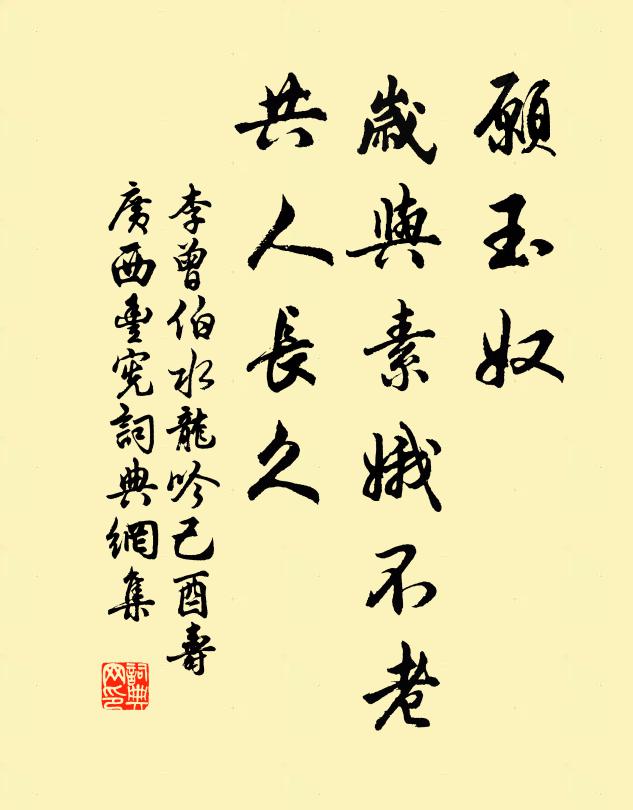 願玉奴
歲與素娥不老
共人長久
李曾伯水龍吟己酉壽
廣西豐憲詞典網集
詞典網印